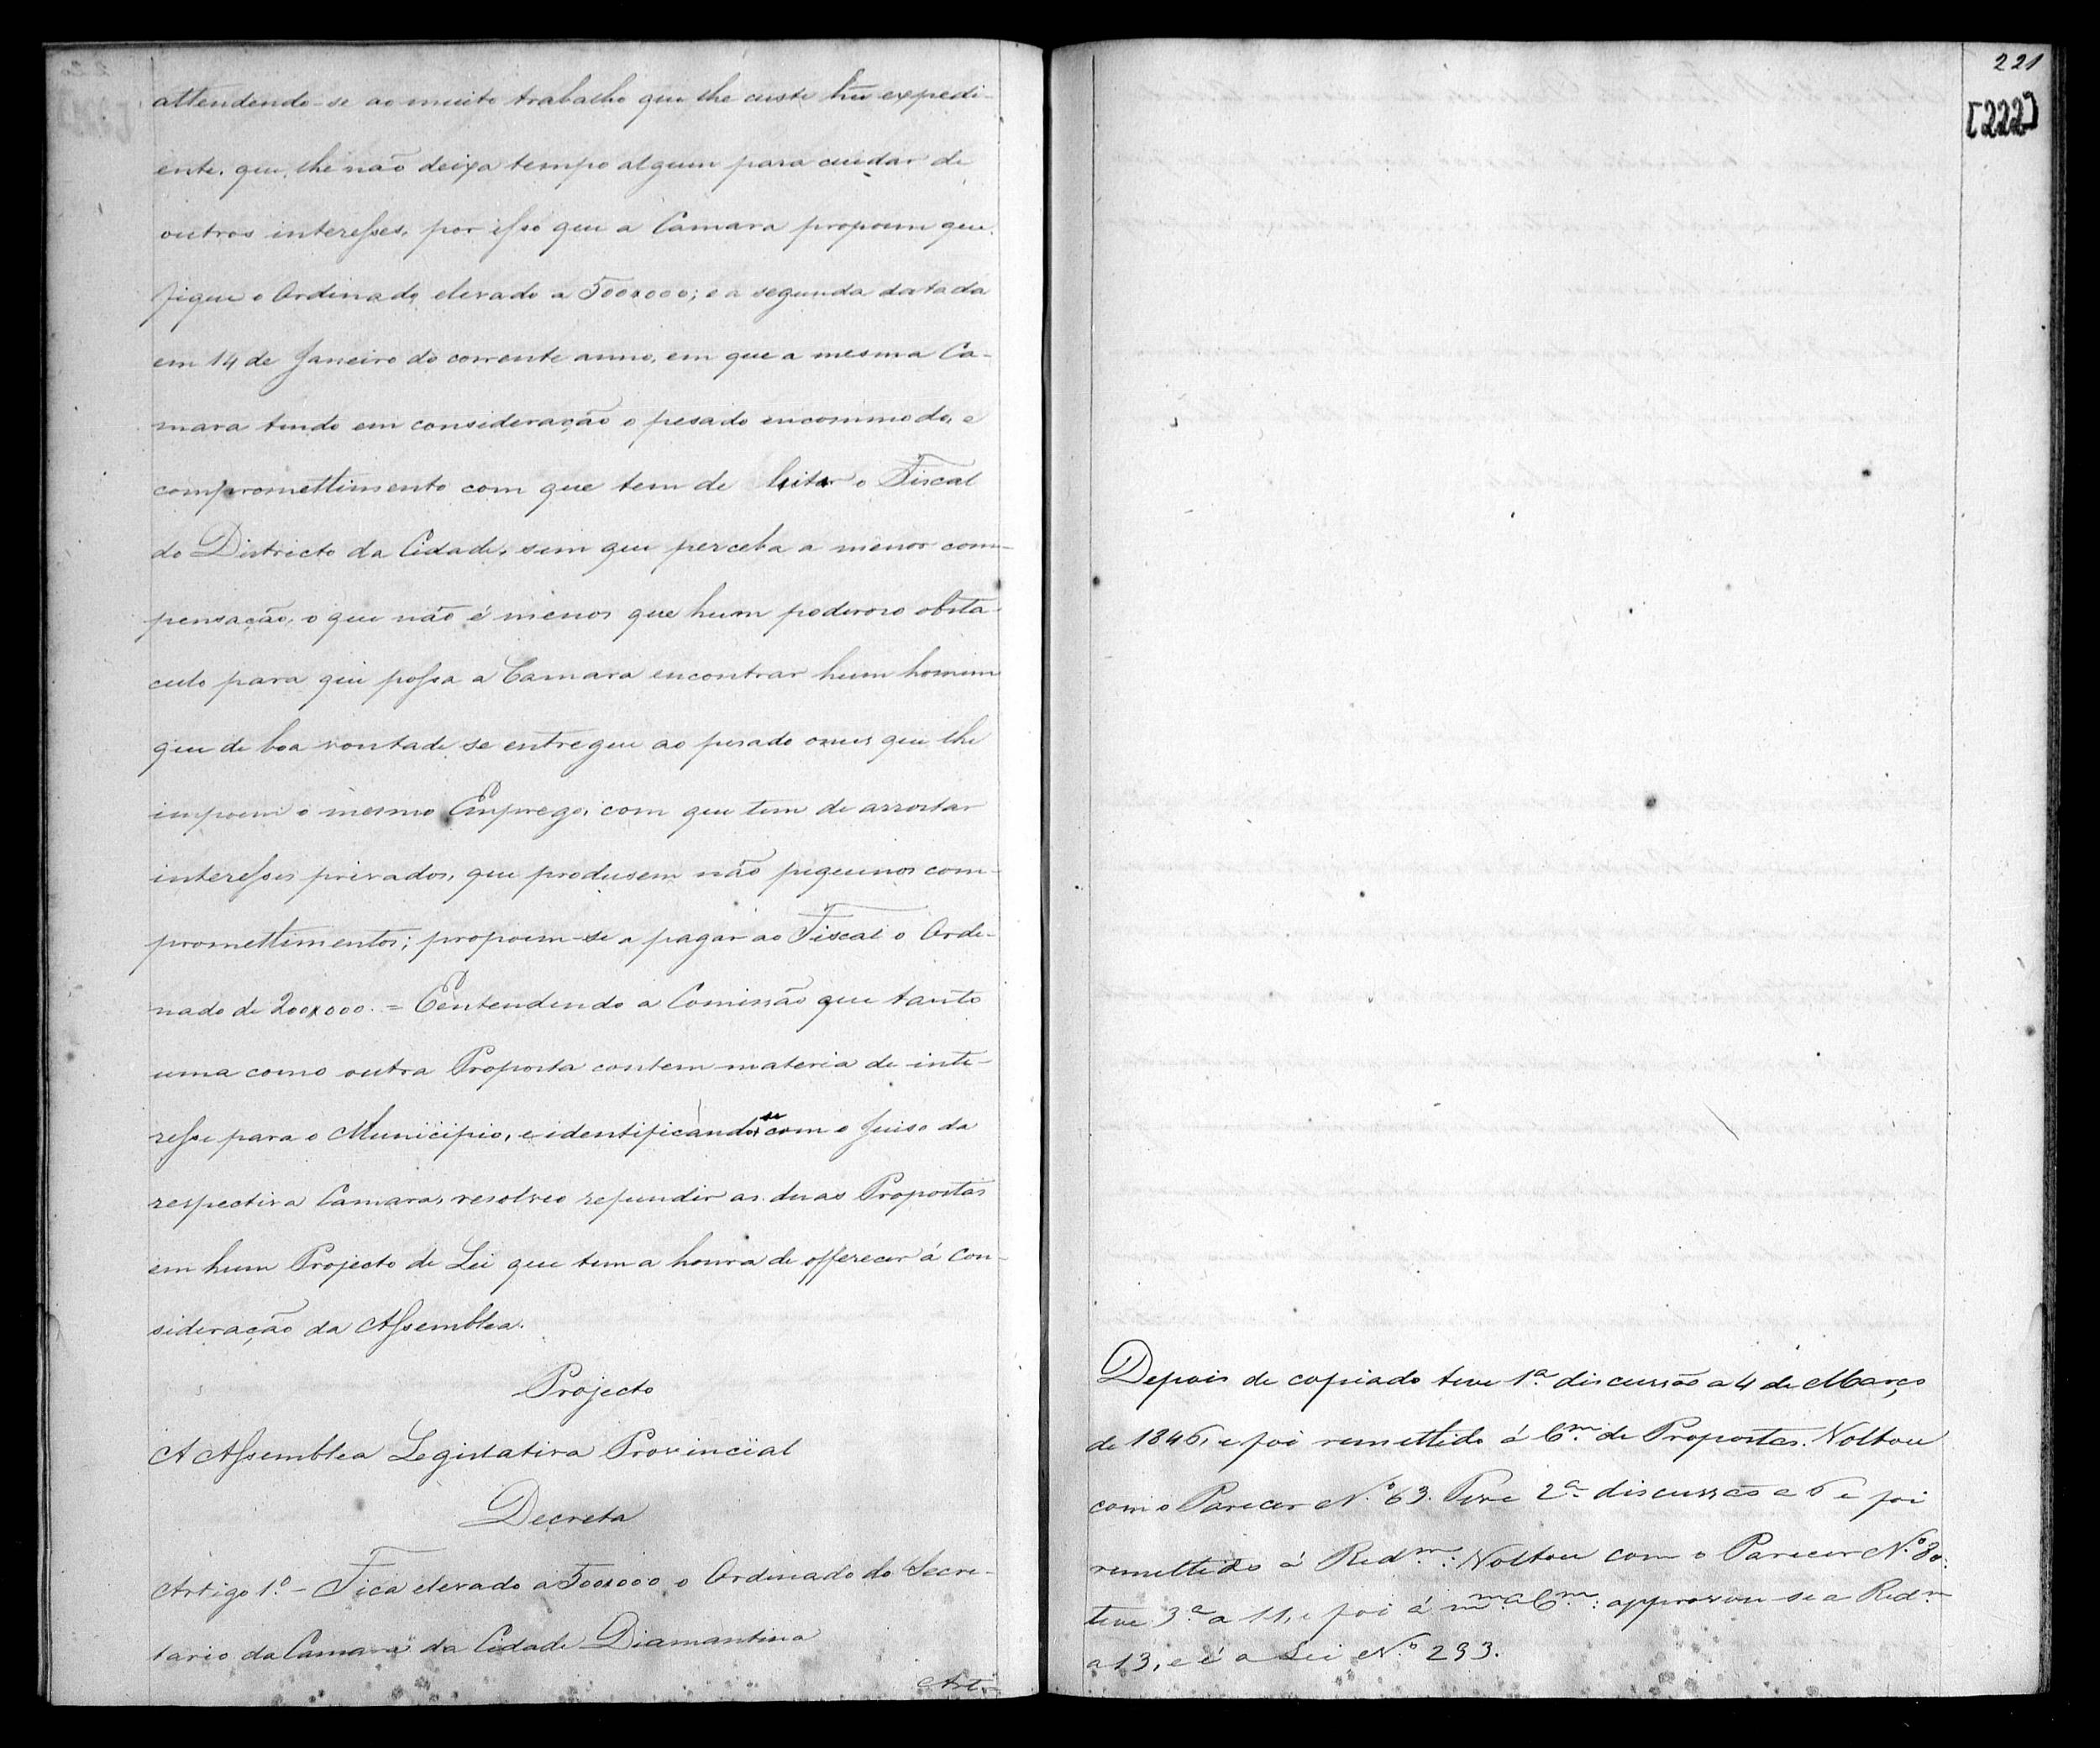 attendendo-se ao muito trabalho que lhe custa hũ expedi-
ente, que lhe não deixa tempo algum para cuidar de
outros interesses, por isso que a Camara propoem que
fique o Ordenado elevado a 500$000; e a segunda datada
em 14 de Janeiro do corrente anno, em que a mesma Ca-
mara tendo em consideração o pesado encommodo, e
compromettimento com que tem de lutar o Fiscal
do Districto da Cidade, sem que perceba a menor com-
pensação, o que não é menos que hum poderoso obsta-
culo para que possa a Camara encontrar hum homem
que de boa vontade se entregue ao pesado onus que lhe
impoem o mesmo Emprego, com que tem de arrostar
interesses privados, que produsem não pequenos com-
promettimentos; propoem-se a pagar ao Fiscal o Orde-
nado de 200$000. = Eentendendo a Comissão que tanto
uma como outra Proposta contem materia de inte-
resse para o Municipio, e identificando se com o Juiso da
respectiva Camara, resolveo refundir as duas Propostas
em hum Projecto de Lei que tem a honra de offerecer á Con-
sideração da Assemblea.
Projecto
A Assemblea Legislativa Provincial
Decreta
Artigo 1.º - Fica elevado a 500$000 o Ordenado do Secre-
tario da Camara da Cidade Diamantina
Art.
221
[222]
Depois de copiado teve 1.ª discussão a 4 de Março
de 1846, e foi remettido á C.m de Propostas. Voltou
com o Parecer N.º 63. Teve 2.ª discussão a 6 e foi
remettido á Red.m: Voltou com o Parecer N.º 80:
teve 3.ª a 11, e foi á m.ma C.m: approvou se a Red.m
a 13, e é a Lei N.º 293.